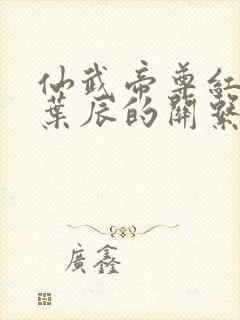 仙武帝尊紅
葉辰的關繫
廣鑫